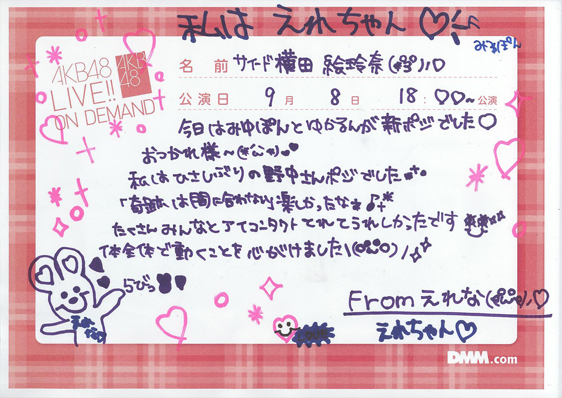 私は えれちゃん♡
みゆぽん
AKB48
LIVE!!
ON DEMAND
AKB
48
名 前 サイード横田 絵玲奈
公演日 9月 8日 18:00~公演
今日はみゆぽんとゆかるんが新ポジでした♡
おつかれ様~
私はひさしぶりの野中さんポジでした
「奇跡は間に合わない」楽しかったな
たくさんみんなとアイコンタクトとれてうれしかったです
体全体で動くことを心がけました\(
らびっ
Fromえれな
えれちゃん♡
DMM.com